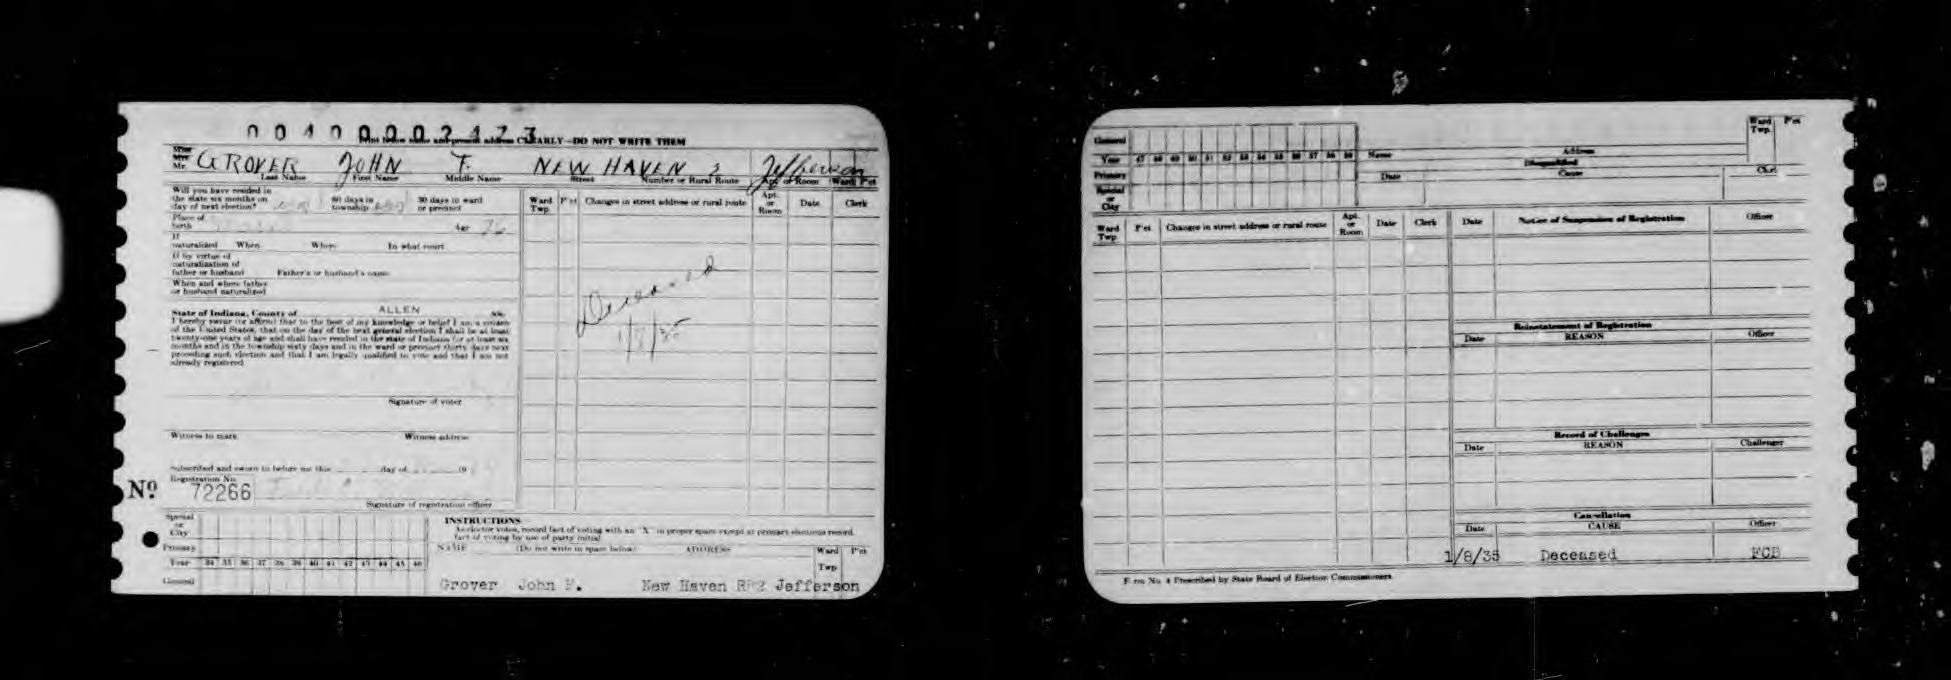 0040000 2473
Print below name and present address CLEARLY—DO NOT WRITE THEM
Miss
Mrs.
Mr. GROVER JOHN F. NEW HAVEN 2 Jefferson
Last Name First Name Middle Name Street Number or Rural Route Apt. or Room Ward P'ct
Will you have resided in
the state six months on 60 days in 30 days in ward
day of next election? township or precinct
Place of
birth Age 76
If
naturalized When Where In what court
If by virtue of
naturalization of
father or husband Father's or husband's name
When and where father
or husband naturalized
State of Indiana, County of ALLEN ss:
I hereby swear (or affirm) that to the best of my knowledge or belief I am a citizen
of the United States, that on the day of the next general election I shall be at least
twenty-one years of age and shall have resided in the state of Indiana for at least six
months and in the township sixty days and in the ward or precinct thirty days next
preceding such election and that I am legally qualified to vote and that I am not
already registered
Signature of voter
Witness to mark Witness address
Subscribed and sworn to before me this day of 19
Registration No.
No. 72266
Signature of registration officer
Ward Twp. P'ct Changes in street address or rural route Apt. or Room Date Clerk
Deceased
1/8/35
Special
or
City
Primary
Year 34 35 36 37 38 39 40 41 42 43 44 45 46
General
INSTRUCTIONS
As elector votes, record fact of voting with an "X" in proper space except at primary elections record
fact of voting by use of party initial
NAME (Do not write in space below) ADDRESS Ward Twp. P'ct
Grover John F. New Haven RR2 Jefferson
General
Year 47 48 49 50 51 52 53 54 55 56 57 58 59
Primary
Special
or
City
Name Address Ward Twp. P'ct
Disqualified
Date Cause Clerk
Ward Twp. P'ct Changes in street address or rural route Apt. or Room Date Clerk
Date Notice of Suspension of Registration Officer
Reinstatement of Registration
Date REASON Officer
Record of Challenges
Date REASON Challenger
Cancellation
Date CAUSE Officer
1/8/35 Deceased FCB
Form No. 4 Prescribed by State Board of Election Commissioners